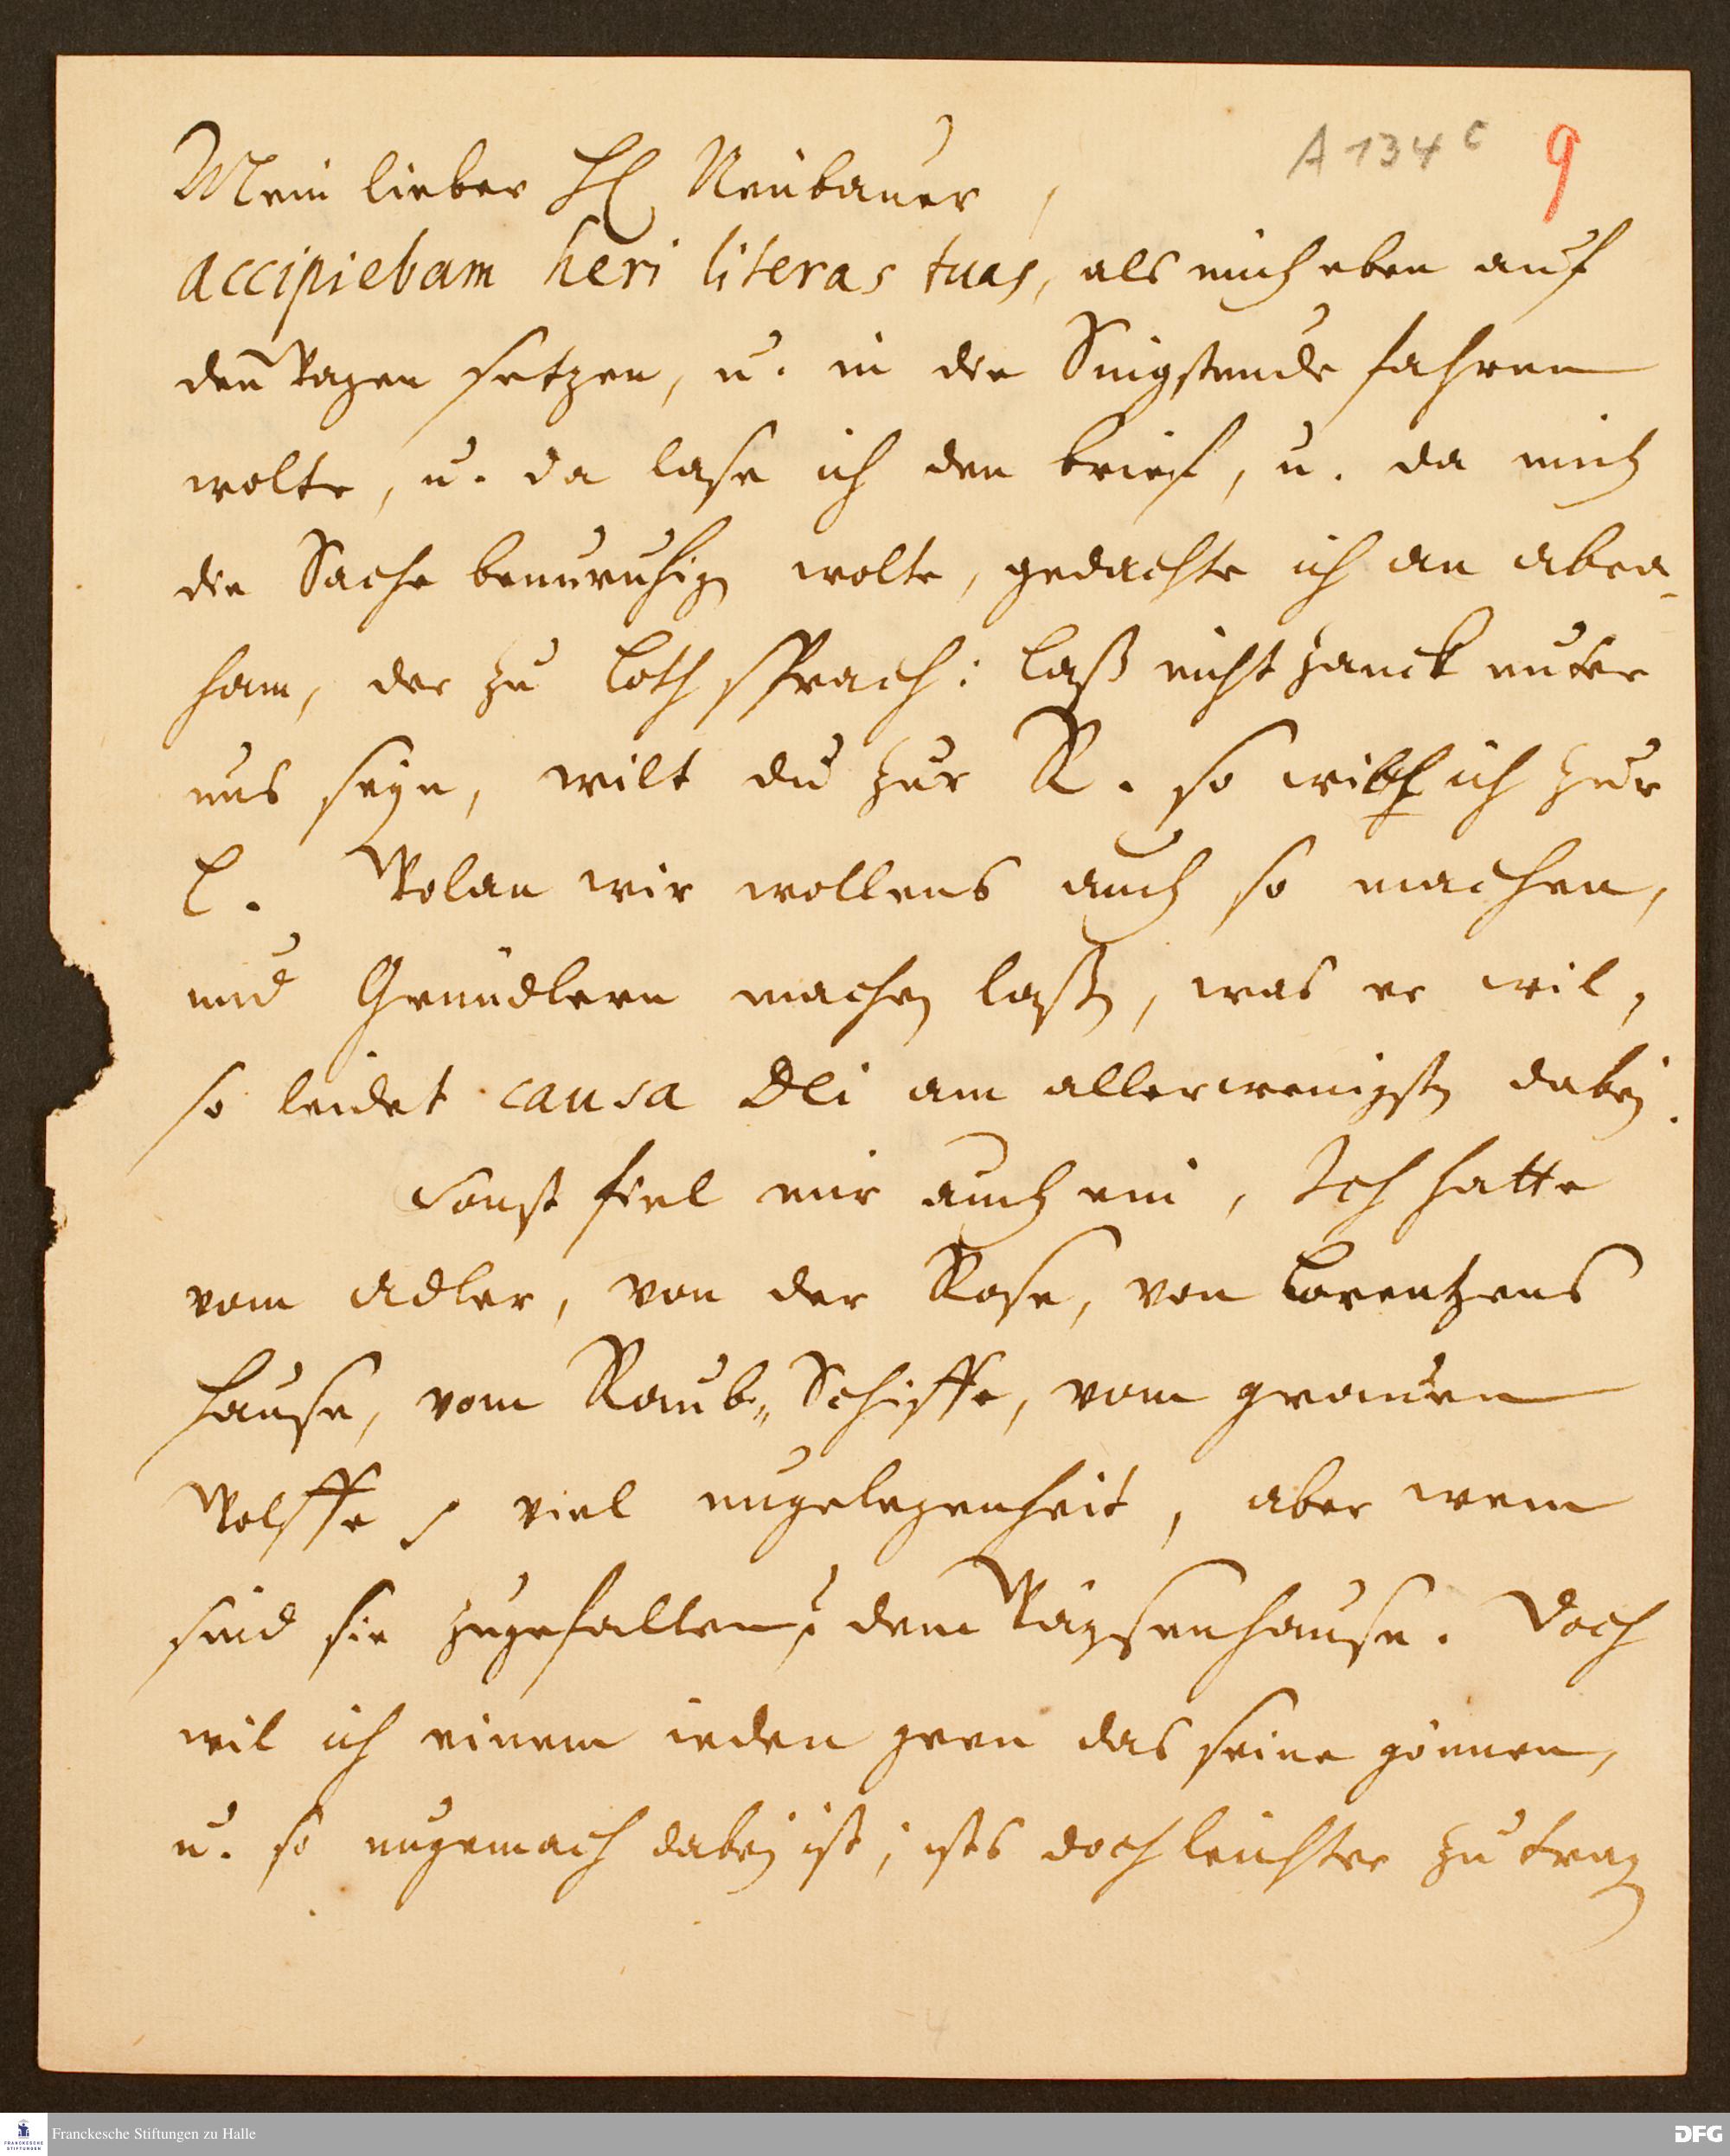 A 134 c 9
Mein lieber H. Neubauer,
accipiebam heri literas tuas, als mich eben auf
den Wagen setzen, u. in die Singstunde fahren
wolte, u. da lase ich den brief, u. da mich
die Sache beunruhigen wolte, gedachte ich an abra-
ham, der zu Loth sprach: laß nicht zanck unter
uns seyn, wilt du zur R. so wil ich zur
L. Wolan wir wollens auch so machen,
und Gründlern machen laßen, was er wil,
so leidet causa Dei am allerwenigsten dabey.
Sonst fiel mir auch ein, Ich hatte
vom adler, von der Rose, von Lorentzens
Hause, vom Raub-Schiffe, vom grauen
Wolffe viel ungelegenheit, aber wem
sind sie zugefallen? dem Wäysenhause. Doch
wil ich einem ieden gern das seine gönnen,
u. so ungemach dabey ist, ists doch leichter zu tragen
Franckesche Stiftungen zu Halle
FRANCKESCHE
STIFTUNGEN
DFG